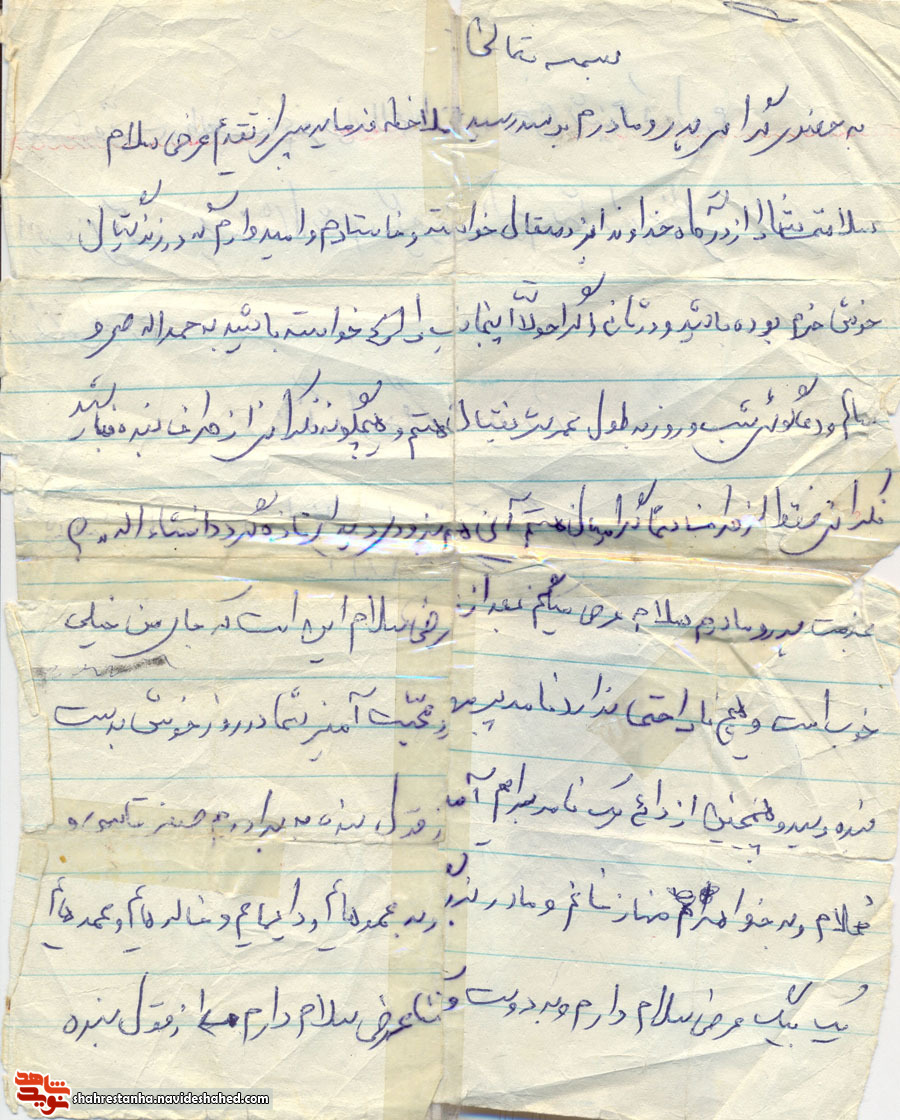 بسمه تعالی
به حضور گرامی پدر و مادرم برسد رسید ملاحظه فرمایید پس از تقدیم عرض سلام
سلامتی شما را از درگاه خداوند ایزد متعال خواسته و خواستارم و امیدوارم که در زندگیتان
خوش خرم بوده باشید و در ثانی اگر احوالات اینجانب را خواسته باشید به حمداله
سالم و دعاگوئی شب و روز به طول عمر شریفتان هستم و هیچگونه نگرانی از طرف بنده نباشد
نگرانی فقط از شما گرامیتان هستم آن هم بزودی دیدار تازه گردد انشاء اله
خدمت پدر و مادرم سلام عرض میکنم بعد از عرض سلام این است که جای من خیلی
خوب است و هیچ ناراحتی ندارد نامه پر محبت آمیز شما در روز خوش بدست
بنده رسید و همچنین از دائی یک نامه برایم آمد از قول بنده به برادرم صفر
سلام و به خواهرم مهناز خانم و مادر بزرگ و به عموهایم و دایهایم و خاله هایم و عمه هایم
یک بیک عرض سلام دارم و به دوست و آشنا عرض سلام دارم از قول بنده
نوید شاهد
shahrestanha.navideshahed.com